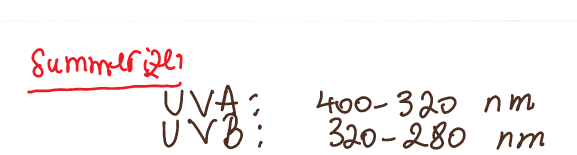 Summerizer
UVA: 400-320 nm
UVB: 320-280 nm